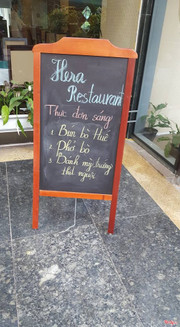 Hera
Restaurant
Thực đơn sáng
1. Bún bò Huế
2. Phở bò
3. Bánh mỳ nướng
thịt nguội